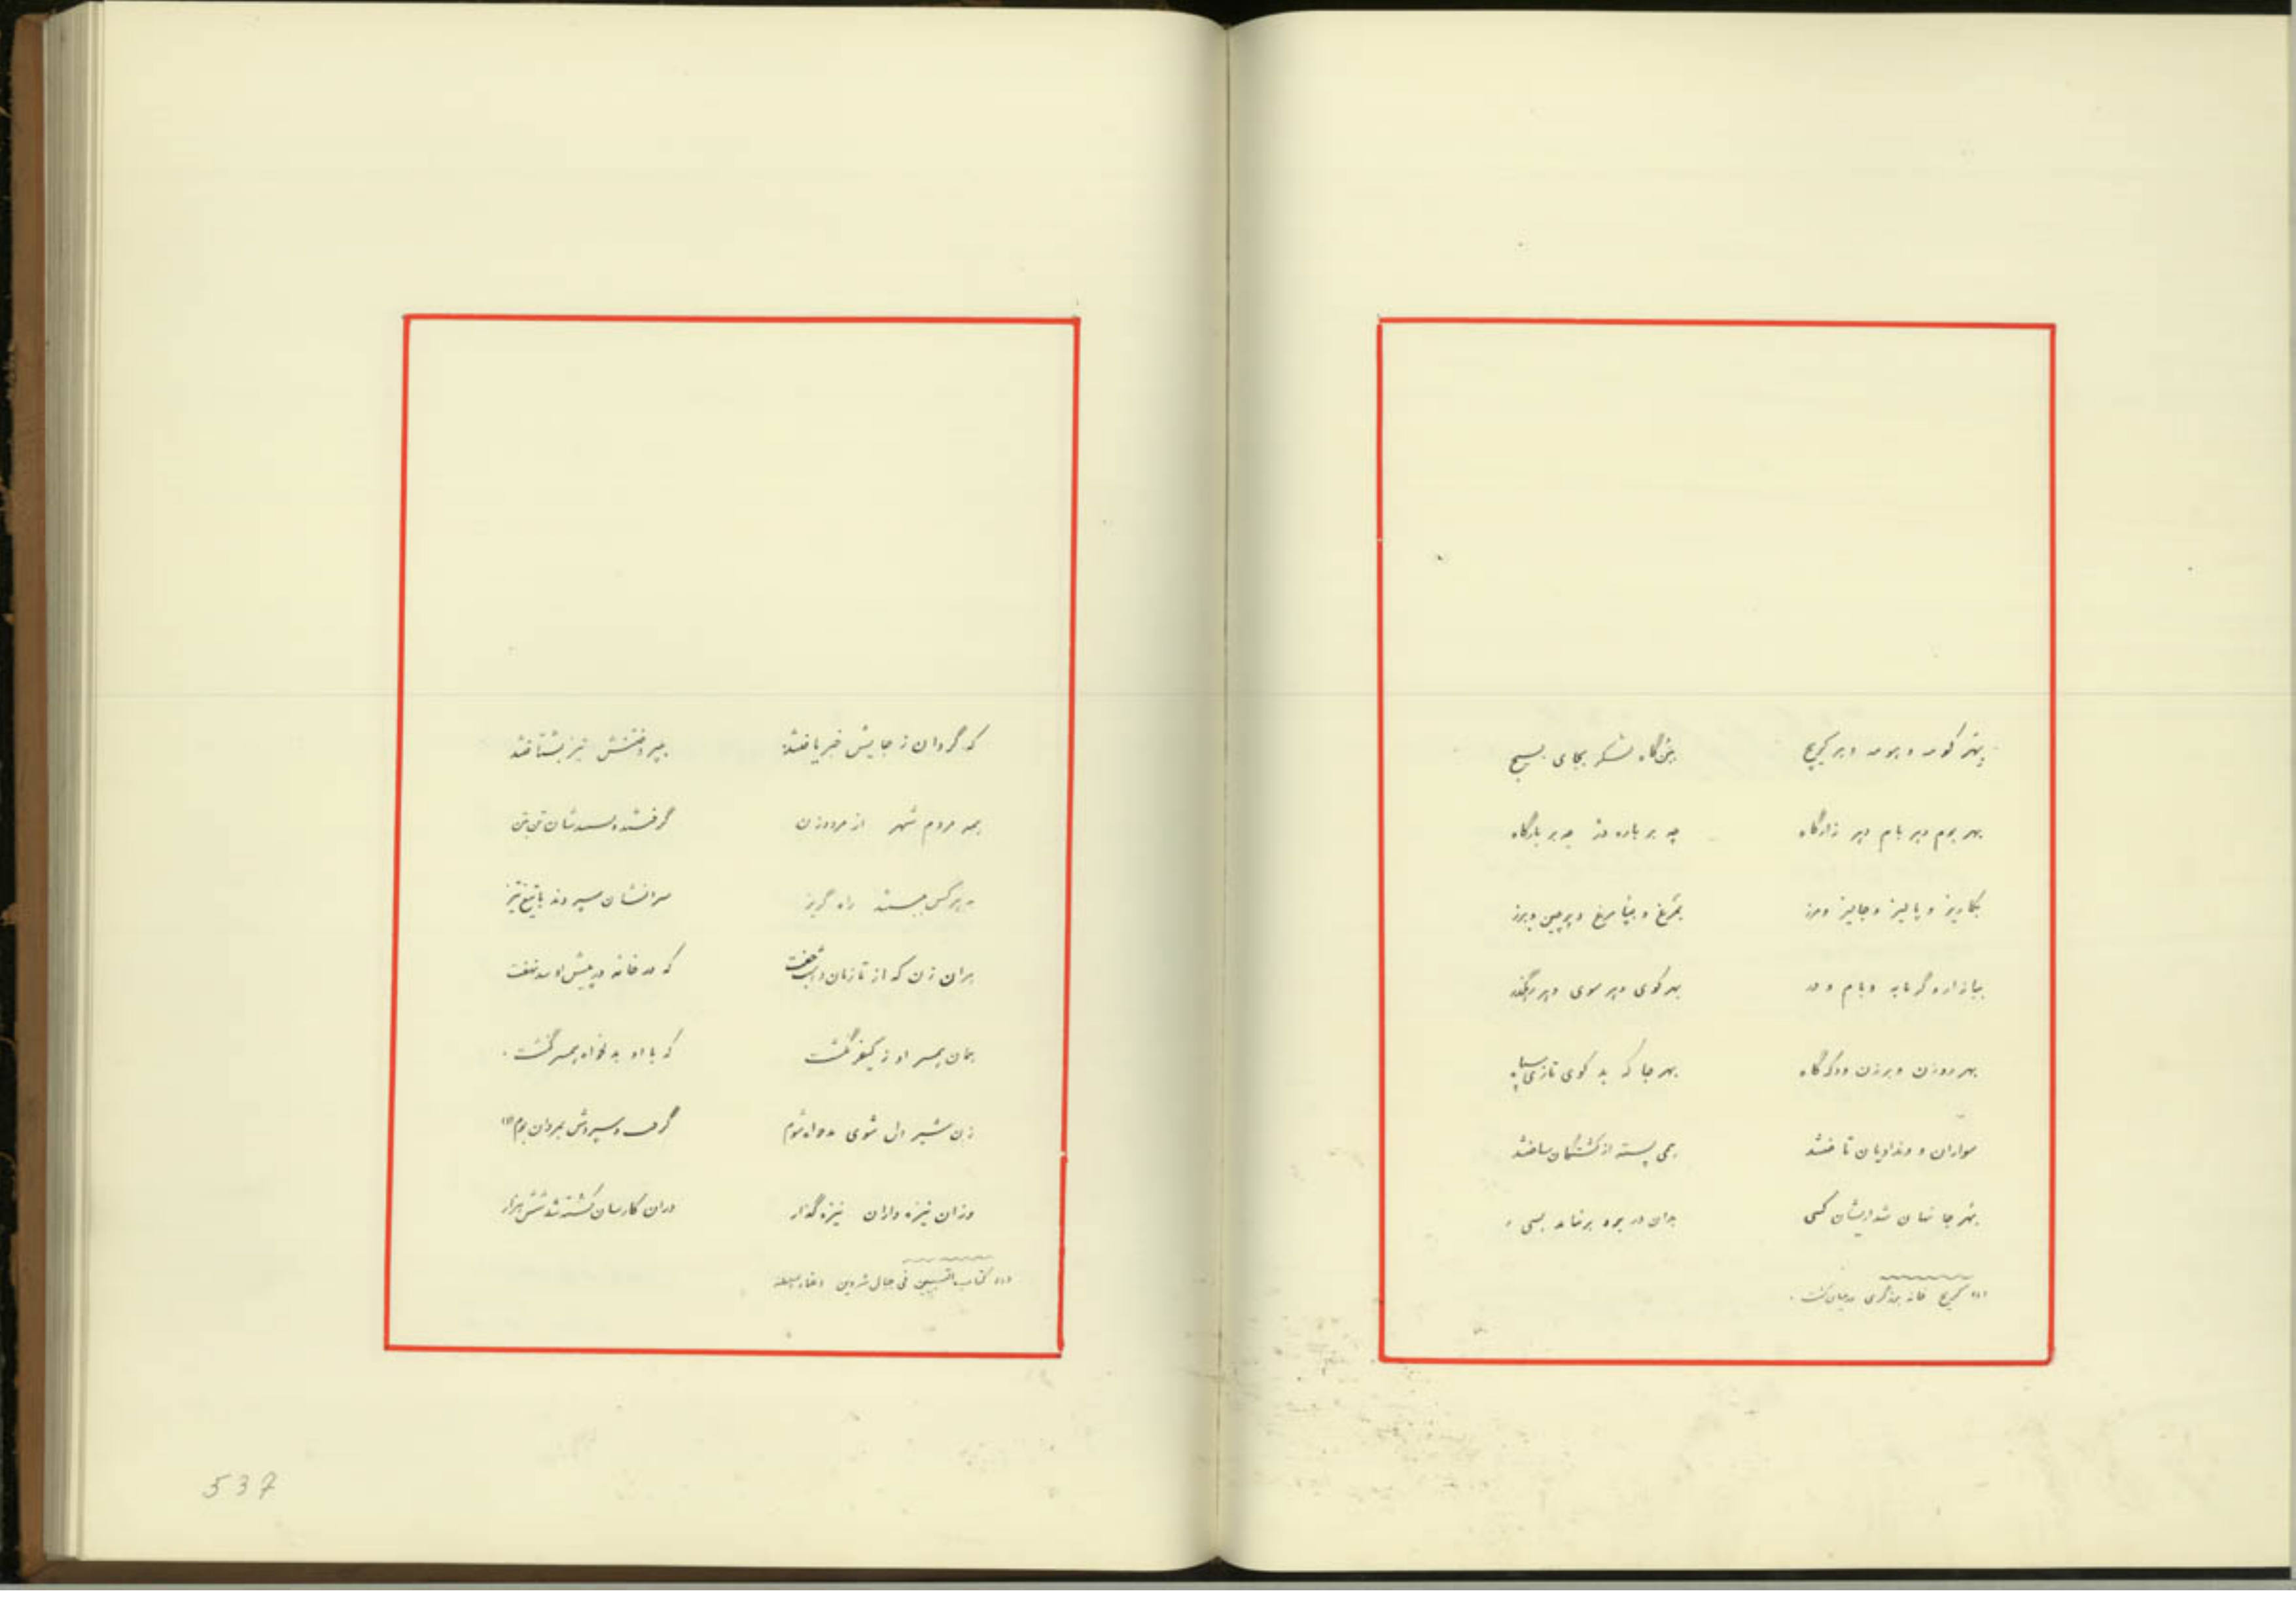 بهر کومه و بومه و بر کریج    بنگاه لشکر بجای بسیج
بهر بوم و بر بام و بر زادگاه    چه بر باره دز چه بر بارگاه
بکاریز و پالیز و جالیز و مرز    و پرچین و برز
ببازار و گرمابه و بام و در    بهر کوی و بر سوی و بر رهگذر
بهر روزن و برزن و    بهر جا که بد کوی تازی سپاه
سواران و وندادیان تاختند    همی پسته از کشتگان ساختند
بهر جا نهان شد ازیشان کسی    بدان در بوه بر نماند بسی
(۱) کریج خانه برزگری در میان کشت .
که گردان ز جایش خبر یافتند    بپیروفتنش تیز بشتافتند
همه مردم شهر از مرد و زن    گرفتند و بستندشان تن بتن
هر کس بجستند راه گریز    سرانشان بریدند با تیغ تیز
بران زن که از تازیان داشت جفت    که در خانه در پیش او بد نهفت
همان همسر او ز کیفر نگشت    که با او بدخواه همسر گشت .
زن شیر دل شوی بدخواه شوم    گرفت و سپردش بمردان بوم (۱)
وزان نیزه داران نیزه گذار    دران کارسان کشته شد شش هزار
(۱) کتاب التدوین فی جبال شروین
537